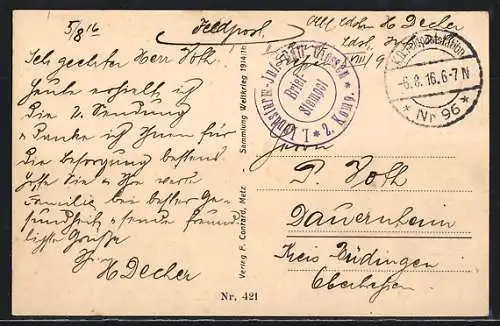 5/8 16
Feldpost.
H Decher
Ich geehrter Herr Voth.
Heute erhielt ich
die 2. Sendung
Danke ich Ihnen für
die Besorgung bestens
hoffe Sie u Ihre werte
Familie bei bester Ge-
sundheit u sende freund-
lichste Grüße
H Decher
Verlag P. Contard, Metz. Sammlung Weltkrieg 1914/16
Nr. 421
Landsturm-Inf. Batl. Giessen * 2. Komp. *
Brief
Stempel
K.D. Feldpoststation
-6.8.16.6-7N
* Nr 96 *
Herrn
P. Voth
Dauernheim
Kreis Büdingen
Oberhessen